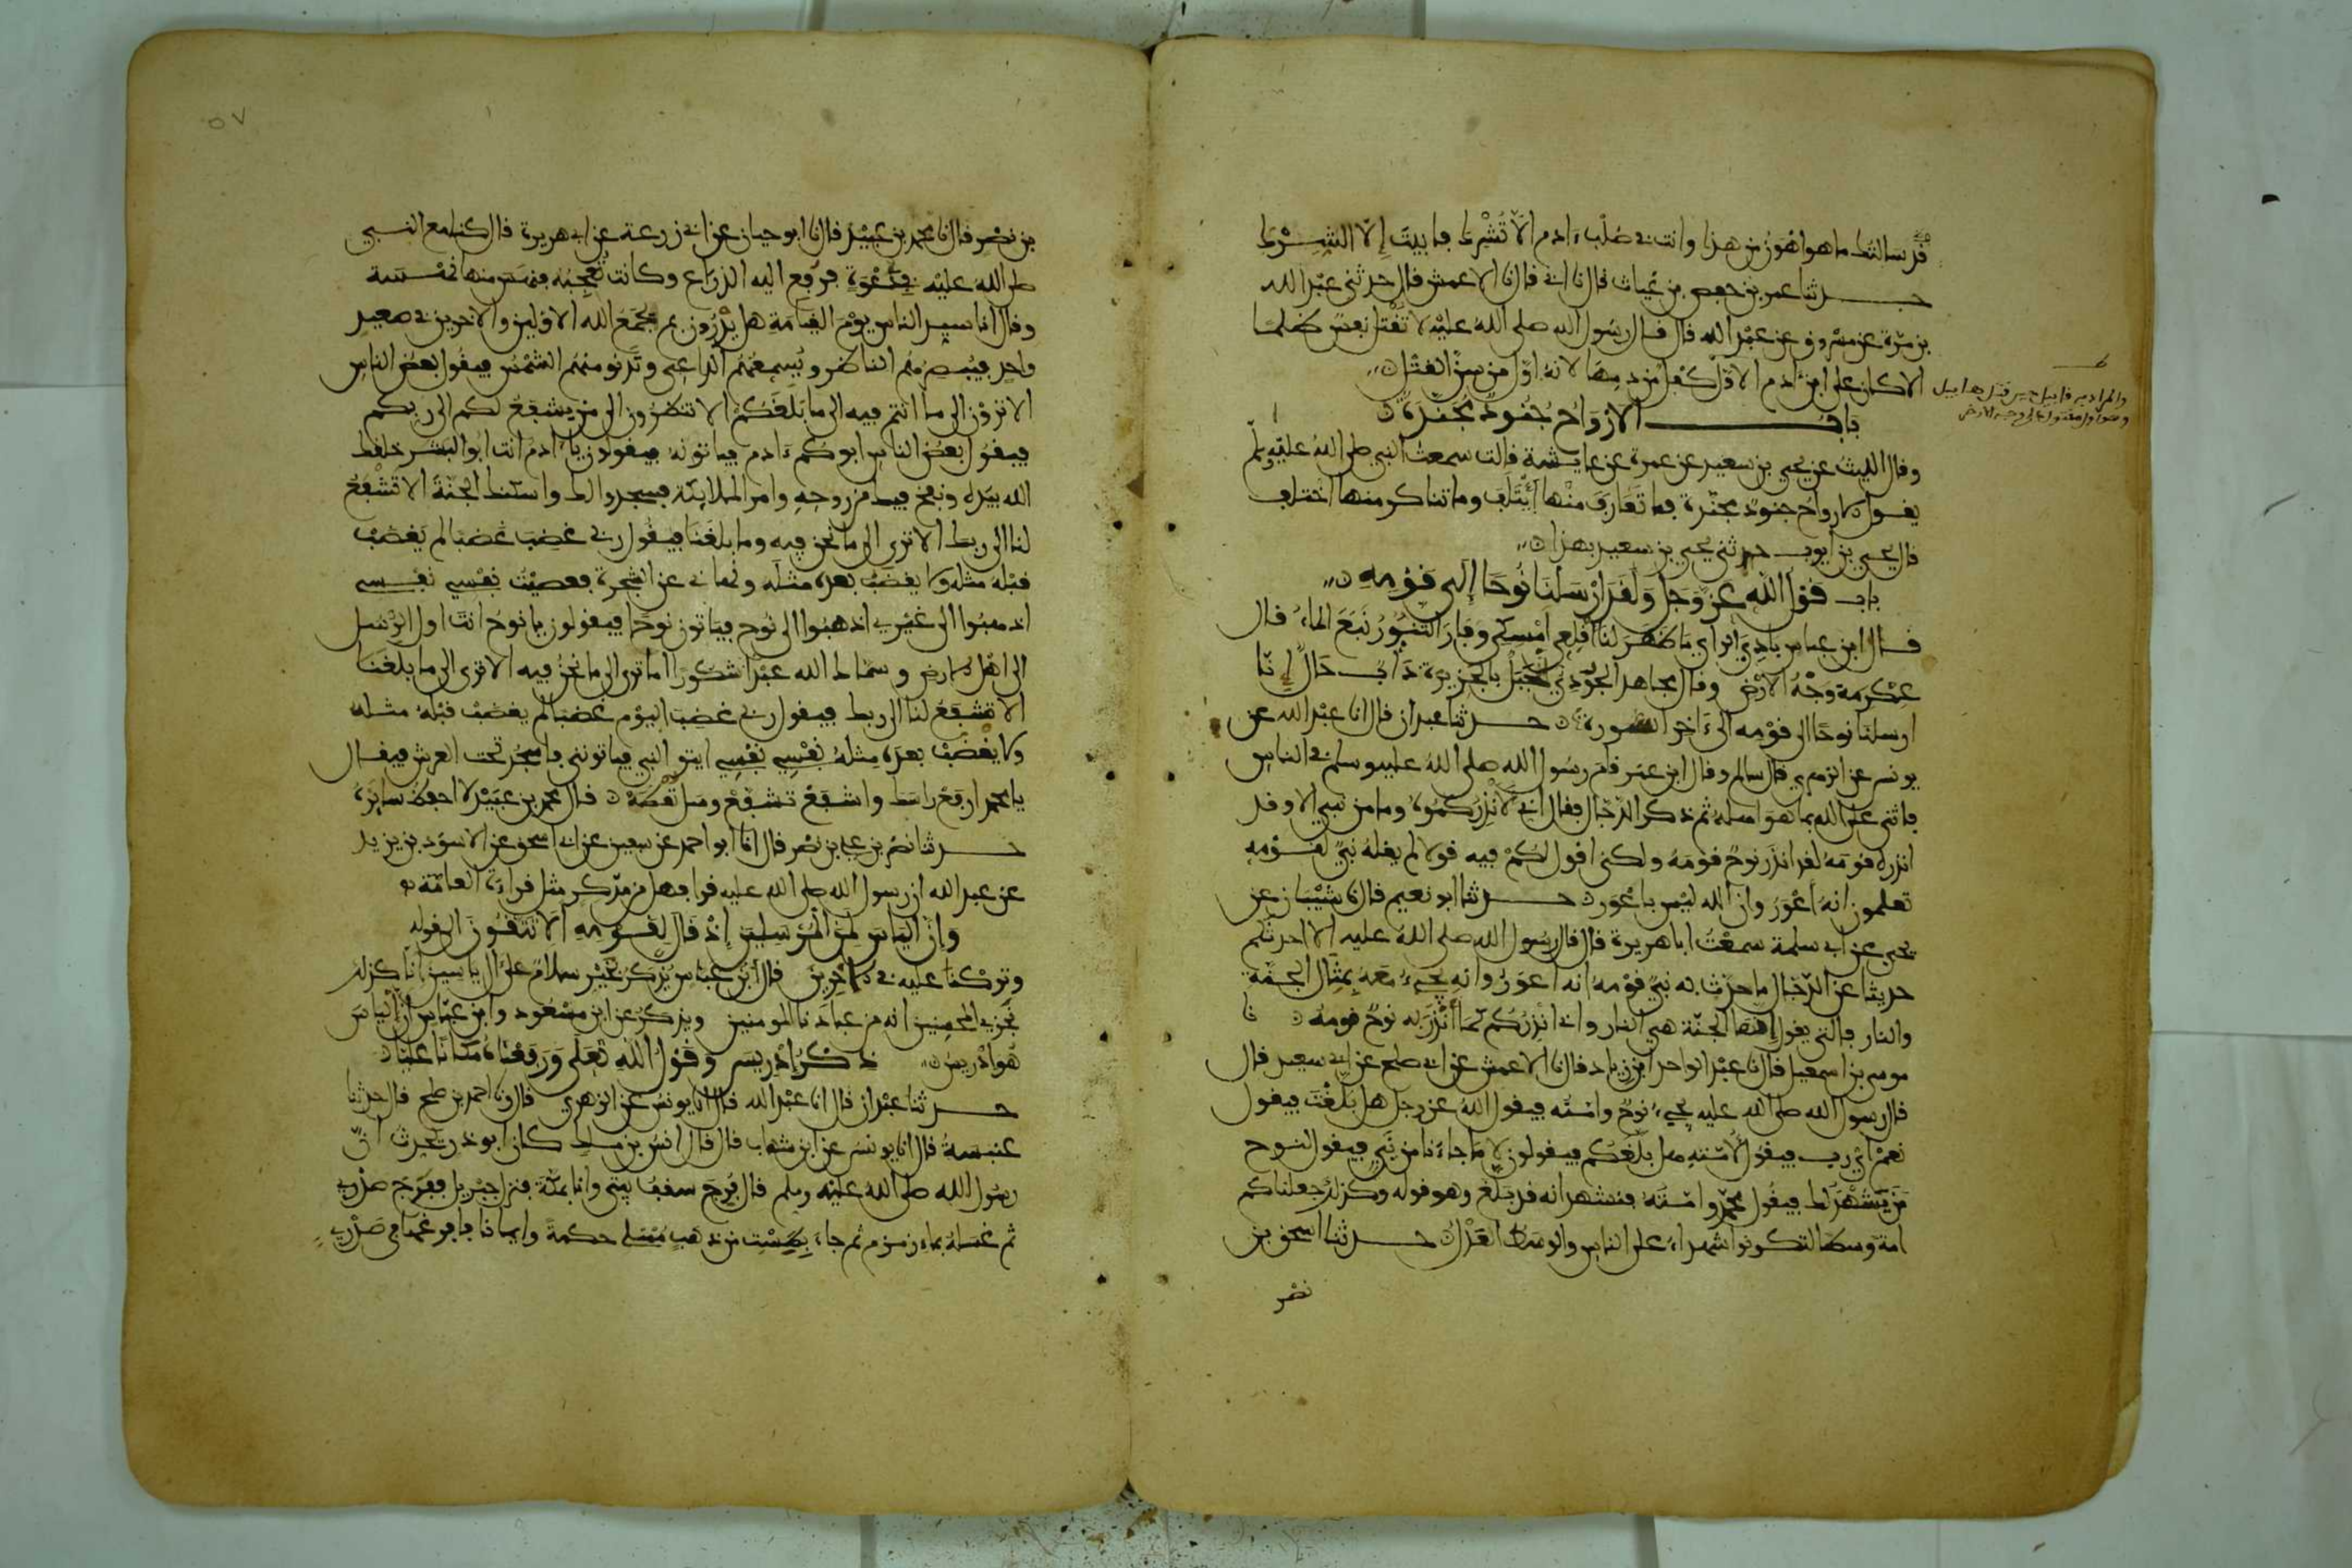 قد سالتك ما هو اهون من هذا وانت في صلب ءادم الا تشرك فابيت إلا الشرك
حدثنا عمر بن حفص بن غياث قال نا ابي قال نا الاعمش قال حدثني عبد الله
بن مرة عن مسروق عن عبد الله قال قال رسول الله صلى الله عليه لا تقتل نفس ظلما
الا كان على ابن ءادم الاول كفل من دمها لانه اول من سن القتل
والمراد به قابيل حين قتل هابيل
وهو أول مقتول على وجه الارض
باب الارواح جنود مجندة
وقال الليث عن يحيى بن سعيد عن عمرة عن عايشة قالت سمعت النبي صلى الله عليه وسلم
يقول الارواح جنود مجندة فما تعارف منها ايتلف وما تناكر منها اختلف
قال يحيى بن ايوب حدثني يحيى بن سعيد بهذا
باب قول الله عز وجل ولقد ارسلنا نوحا إلى قومه
قال ابن عباس بادي الراي ما ظهر لنا اقلعي امسكي وفار التنور نبع الماء قال
عكرمة وجه الارض وقال مجاهد الجودي جبل بالجزيرة دأب حال إنا
ارسلنا نوحا الى قومه الى ءاخر السورة حدثنا عبدان قال انا عبد الله عن
يونس عن الزهري قال سالم وقال ابن عمر قام رسول الله صلى الله عليه وسلم في الناس
فاثنى على الله بما هو اهله ثم ذكر الدجال فقال اني لانذركموه وما من نبي الا وقد
انذره قومه لقد انذر نوح قومه ولكني اقول لكم فيه قولا لم يقله نبي لقومه
تعلمون انه اعور وان الله ليس باعور حدثنا ابو نعيم قال نا شيبان عن
يحيى عن ابي سلمة سمعت ابا هريرة قال قال رسول الله صلى الله عليه الا احدثكم
حديثا عن الدجال ما حدث به نبي قومه انه اعور وانه يجيء معه بمثال الجنة
والنار فالتي يقول إنها الجنة هي النار واني انذركم كما أنذر به نوح قومه نا
موسى بن اسمعيل قال نا عبد الواحد ابن زياد قال نا الاعمش عن ابي صلح عن ابي سعيد قال
قال رسول الله صلى الله عليه يجيء نوح وامته فيقول الله عز وجل هل بلغت فيقول
نعم اي رب فيقول لامته هل بلغكم فيقولون لا ما جاءنا من نبي فيقول لنوح
من يشهد لك فيقول محمد وامته فنشهد انه قد بلغ وهو قوله وكذلك جعلناكم
امة وسطا لتكونوا شهداء على الناس والوسط العدل حدثنا اسحق بن
نصر
٥٧
بن نصر قال نا محمد بن عبيد قال نا ابو حيان عن ابي زرعة عن ابي هريرة قال كنا مع النبي
صلى الله عليه في دعوة فرفع اليه الذراع وكانت تعجبه فنهس منها نهسة
وقال انا سيد الناس يوم القيامة هل تدرون بم يجمع الله الاولين والاخرين في صعيد
واحد فيبصرهم الناظر ويسمعهم الداعي وتدنو منهم الشمس فيقول بعض الناس
الا ترون الى ما انتم فيه الى ما بلغكم الا تنظرون الى من يشفع لكم الى ربكم
فيقول بعض الناس ابوكم ءادم فياتونه فيقولون يا ءادم انت ابو البشر خلقك
الله بيده ونفخ فيك من روحه وامر الملايكة فسجدوا لك واسكنك الجنة الا تشفع
لنا الى ربك الا ترى الى ما نحن فيه وما بلغنا فيقول ربي غضب غضبا لم يغضب
قبله مثله ولا يغضب بعده مثله ونهاني عن الشجرة فعصيت نفسي نفسي
اذهبوا الى غيري اذهبوا الى نوح فياتون نوحا فيقولون يا نوح انت اول الرسل
الى اهل الارض وسماك الله عبدا شكورا اما ترى الى ما نحن فيه الا ترى الى ما بلغنا
الا تشفع لنا الى ربك فيقول ربي غضب اليوم غضبا لم يغضب قبله مثله
ولا يغضب بعده مثله نفسي نفسي ايتو النبي فياتونني فاسجد تحت العرش فيقال
يا محمد ارفع راسك واشفع تشفع وسل تعطه قال محمد بن عبيد لا احفظ سائره
حدثنا نصر بن علي بن نصر قال انا ابو احمد عن سفين عن ابي اسحق عن الاسود بن يزيد
عن عبد الله ان رسول الله صلى الله عليه قرا فهل من مدكر مثل قراءة العامة
وإن الياس لمن المرسلين إذ قال لقومه ألا تتقون الى قوله
وتركنا عليه في الاخرين قال ابن عباس يذكر بخير سلام على ال ياسين إنا كذلك
نجزي المحسنين انه من عبادنا المومنين ويذكر عن ابن مسعود وابن عباس أن إلياس
هو ادريس ذكر إدريس وقول الله تعلى ورفعناه مكانا عليا
حدثنا عبدان قال انا عبد الله قال انا يونس عن الزهري قال ونا احمد بن صلح قال حدثنا
عنبسة قال نا يونس عن ابن شهاب قال قال انس بن ملك كان ابو ذر يحدث أن
رسول الله صلى الله عليه وسلم قال فرج سقف بيتي وانا بمكة فنزل جبريل ففرج صدري
ثم غسله بماء زمزم ثم جاء بطست من ذهب ممتلي حكمة وايمانا فافرغها في صدري